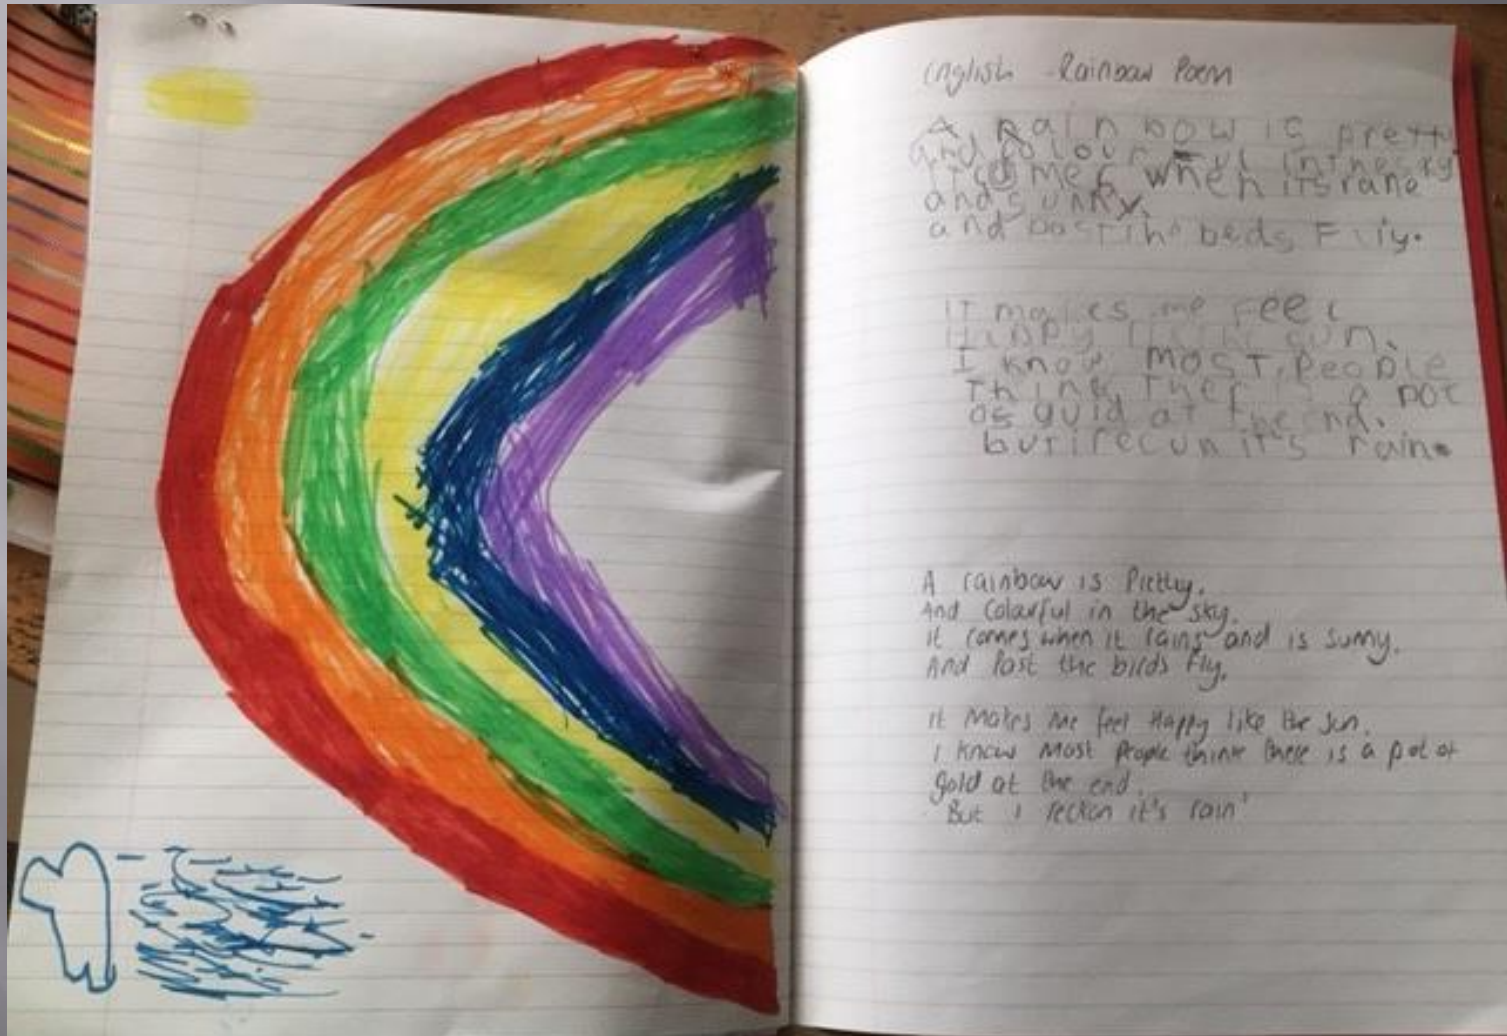 English - Rainbow Poem
A rain bow is pretty
and colour ful in the sky
it comes when its rane
and sunny.
and past the beds Fliy.
IT makes me feel
Happy like sun.
I know most, people
Think ther is a pot
os guid at the end.
but i recun it's rain.
A rainbow is Pretty.
And Colourful in the sky.
it comes when it rains and is sunny.
And Past the birds fly.
it makes me feel Happy like the sun.
I know most people think there is a pot of
gold at the end.
But I reckon it's rain'